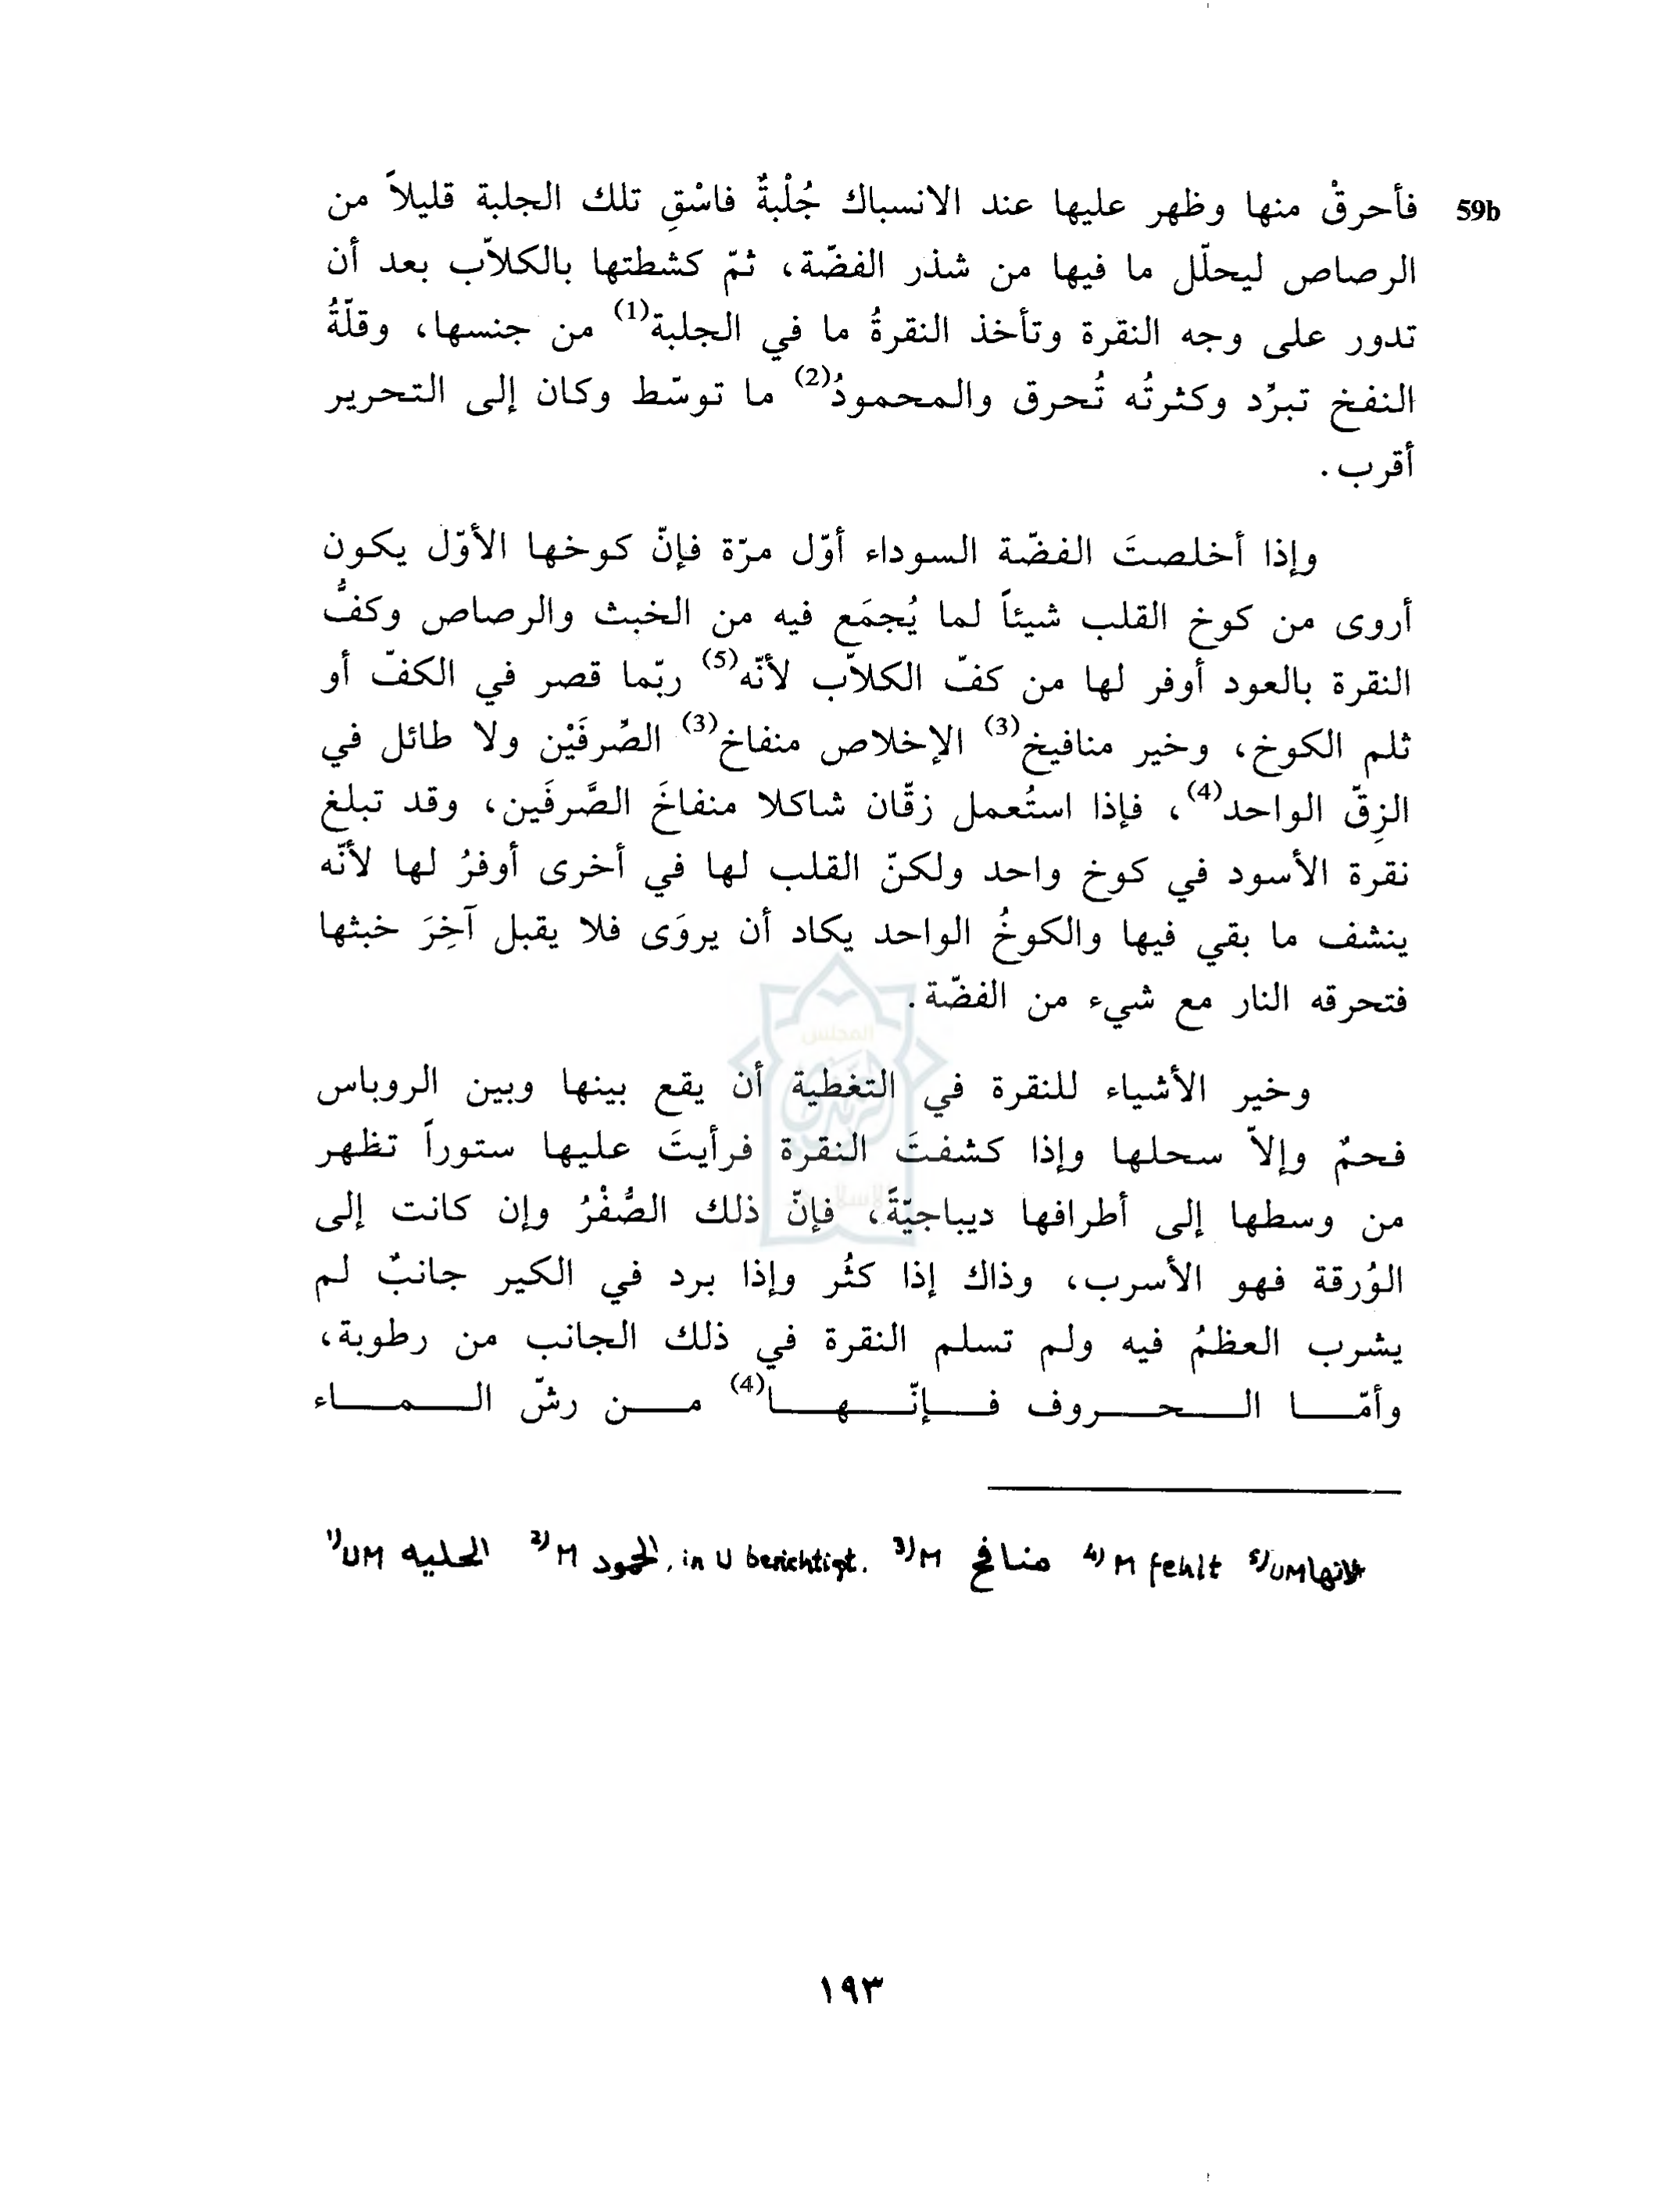 59b فأحرقْ منها وظهر عليها عند الانسباك جُلْبةٌ فاسْقِ تلك الجلبة قليلاً من
الرصاص ليحلّل ما فيها من شذر الفضّة، ثمّ كشطتها بالكلاّب بعد أن
تدور على وجه النقرة وتأخذ النقرةُ ما في الجلبة(1) من جنسها، وقلّةُ
النفخ تبرِّد وكثرتُه تُحرق والمحمودُ(2) ما توسّط وكان إلى التحرير
أقرب.
وإذا أخلصتَ الفضّة السوداء أوّل مرّة فإنّ كوخها الأوّل يكون
أروى من كوخ القلب شيئاً لما يُجمَع فيه من الخبث والرصاص وكفُّ
النقرة بالعود أوفر لها من كفّ الكلاّب لأنّه(5) ربّما قصر في الكفّ أو
ثلم الكوخ، وخير منافيخ(3) الإخلاص منفاخ(3) الصِّرفَيْن ولا طائل في
الزِقّ الواحد(4)، فإذا استُعمل زقّان شاكلا منفاخَ الصَّرفَين، وقد تبلغ
نقرة الأسود في كوخ واحد ولكنّ القلب لها في أخرى أوفرُ لها لأنّه
ينشف ما بقي فيها والكوخُ الواحد يكاد أن يروَى فلا يقبل آخِرَ خبثها
فتحرقه النار مع شيء من الفضّة.
وخير الأشياء للنقرة في التغطية أن يقع بينها وبين الروباس
فحمٌ وإلاّ سحلها وإذا كشفتَ النقرة فرأيتَ عليها ستوراً تظهر
من وسطها إلى أطرافها ديباجيّةً، فإنّ ذلك الصُّفْرُ وإن كانت إلى
الوُرقة فهو الأسرب، وذاك إذا كثُر وإذا برد في الكير جانبٌ لم
يشرب العظمُ فيه ولم تسلم النقرة في ذلك الجانب من رطوبة،
وأمّـا الـحـروف فـإنّـهـا(4) مـن رشّ الـمـاء
1) UM الحليه 2) M الحمود, in U berichtigt. 3) M منافخ 4) M fehlt 5) UM لانها
١٩٣